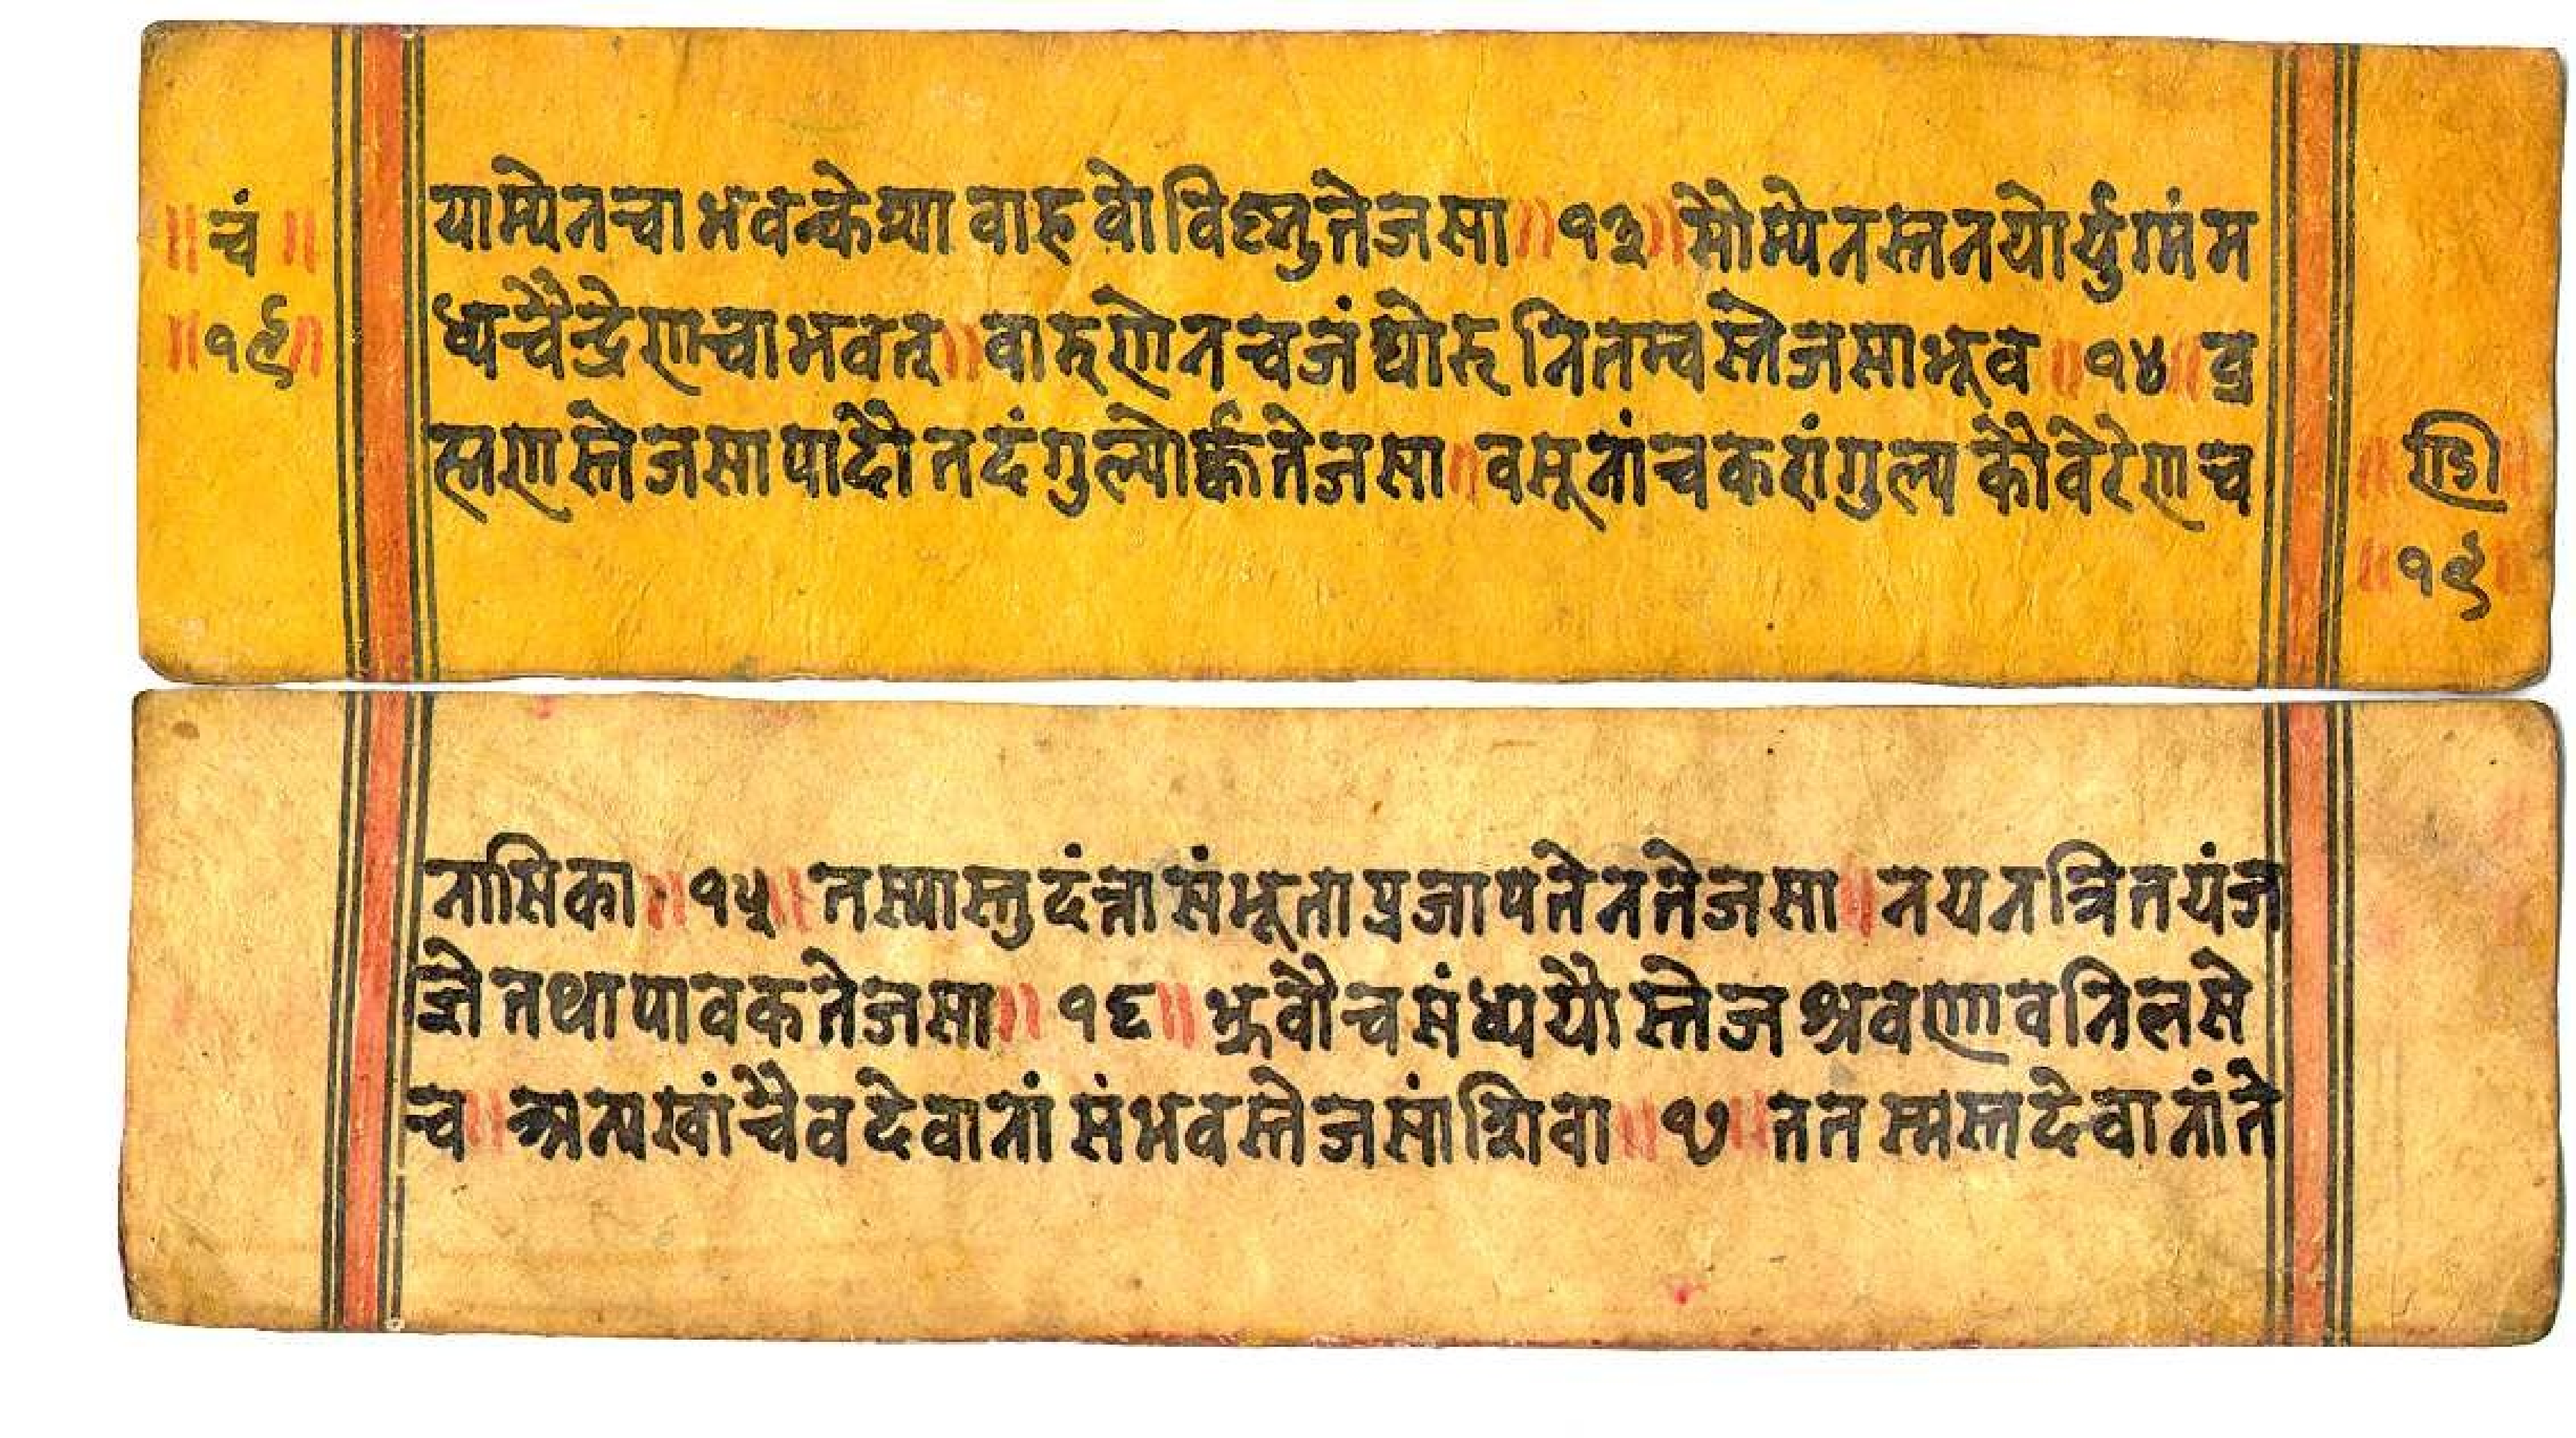 ॥ चं ॥
॥ १९ ॥
याम्येनचाभवन्केशा वाहवो विष्नुतेजसा ॥ १३ ॥ सौम्येनस्तनयोर्युग्मंम
ध्यन्चैन्द्रेणचाभवत् ॥ वारुणेनचजंघोरु नितम्वस्तेजसाभूव ॥ १४ ॥ व्र
ह्मणस्तेजसा पादौ तदंगुल्योर्क्कतेजसा ॥ वसूनांचकरांगुल्य कौवेरेणच
॥ ण्डि ॥
॥ १९ ॥
नासिका ॥ १५ ॥ तस्यास्तुदंन्तासंभूता प्रजापतेनतेजसा ॥ नयनत्रितयंज
ज्ञे तथापावकतेजसा ॥ १६ ॥ भ्रुवौचसंध्ययौस्तेज श्रवणावनिलसे
च ॥ अन्यखांचैवदेवानां संभवस्तेजसांशिवा ॥ १७ ॥ ततसमस्तदेवानांते